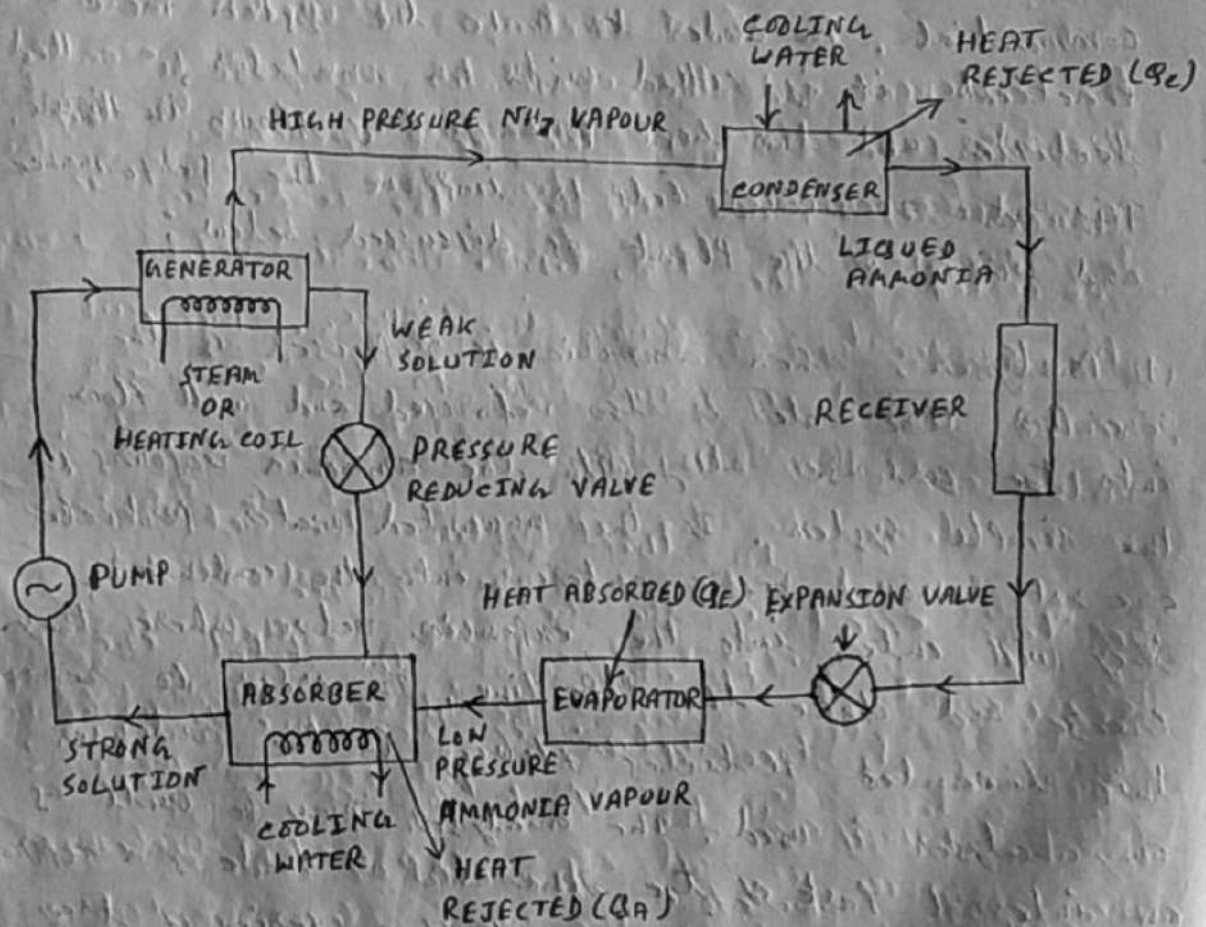 COOLING
WATER
HEAT
REJECTED (Qc)
HIGH PRESSURE NH3 VAPOUR
CONDENSER
GENERATOR
LIQUED
AMMONIA
WEAK
SOLUTION
STEAM
OR
HEATING COIL
RECEIVER
PRESSURE
REDUCING VALVE
PUMP
HEAT ABSORBED (QE)
EXPANSION VALVE
ABSORBER
EVAPORATOR
STRONG
SOLUTION
LOW
PRESSURE
AMMONIA VAPOUR
COOLING
WATER
HEAT
REJECTED (QA)